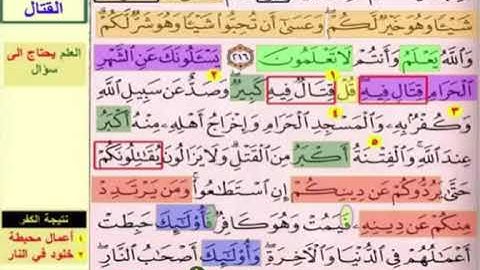 القتال
شَيْـًٔا وَهُوَ خَيْرٌ لَّكُمْ ۖ وَعَسَىٰٓ أَن تُحِبُّوا۟ شَيْـًٔا وَهُوَ شَرٌّ لَّكُمْ ۗ
وَٱللَّهُ يَعْلَمُ وَأَنتُمْ لَا تَعْلَمُونَ ٢١٦ يَسْـَٔلُونَكَ عَنِ ٱلشَّهْرِ
ٱلْحَرَامِ قِتَالٍ فِيهِ ۖ قُلْ قِتَالٌ فِيهِ كَبِيرٌ ۖ وَصَدٌّ عَن سَبِيلِ ٱللَّهِ
وَكُفْرٌۢ بِهِۦ وَٱلْمَسْجِدِ ٱلْحَرَامِ وَإِخْرَاجُ أَهْلِهِۦ مِنْهُ أَكْبَرُ
عِندَ ٱللَّهِ ۚ وَٱلْفِتْنَةُ أَكْبَرُ مِنَ ٱلْقَتْلِ ۗ وَلَا يَزَالُونَ يُقَـٰتِلُونَكُمْ
حَتَّىٰ يَرُدُّوكُمْ عَن دِينِكُمْ إِنِ ٱسْتَطَـٰعُوا۟ ۚ وَمَن يَرْتَدِدْ
مِنكُمْ عَن دِينِهِۦ فَيَمُتْ وَهُوَ كَافِرٌ فَأُو۟لَـٰٓئِكَ حَبِطَتْ
أَعْمَـٰلُهُمْ فِى ٱلدُّنْيَا وَٱلْـَٔاخِرَةِ ۖ وَأُو۟لَـٰٓئِكَ أَصْحَـٰبُ ٱلنَّارِ ۖ
العلم يحتاج الى
سؤال
١
٢
٣
٤
٥
نتيجة الكفر
١ أعمال محبطة
٢ خلود في النار